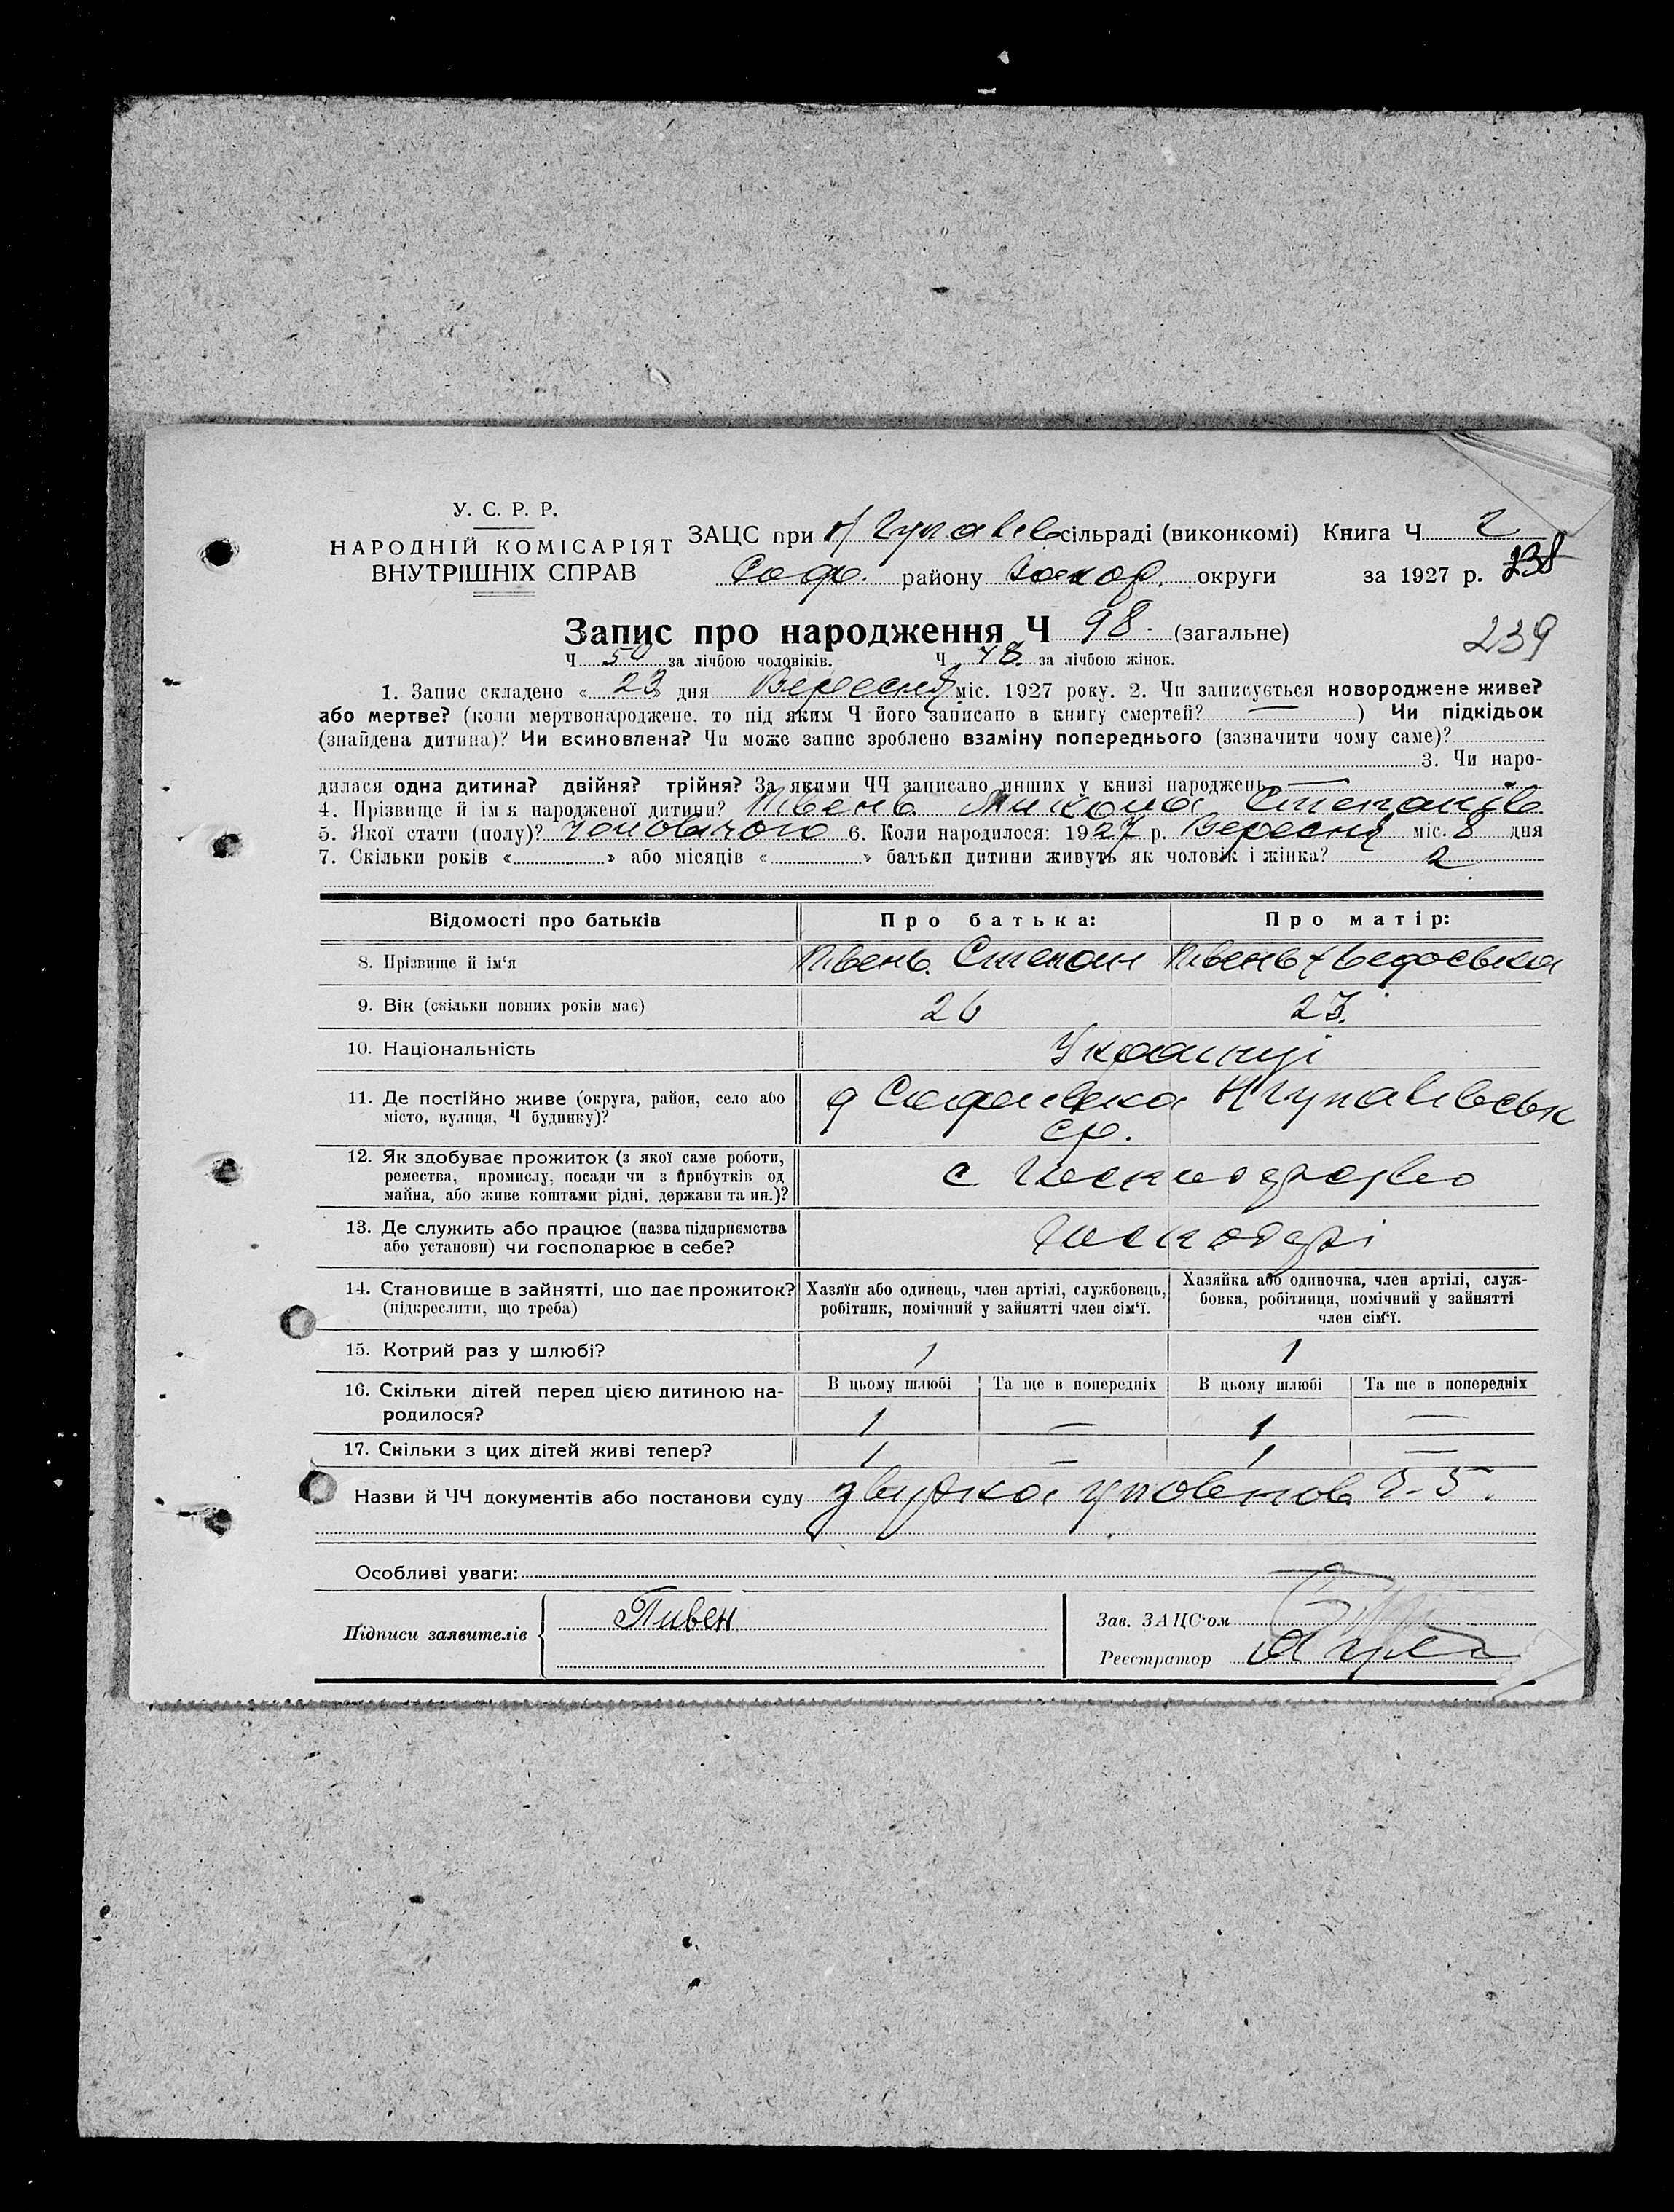 У. С. Р. Р.
НАРОДНІЙ КОМІСАРІЯТ
ВНУТРІШНІХ СПРАВ
ЗАЦС при сільраді (виконкомі) Книга Ч 2
Соф. району округи за 1927 р. 238
Запис про народження Ч 98 (загальне) 239
Ч 50 за лічбою чоловіків. Ч 48 за лічбою жінок.
1. Запис складено « 23 » дня Вересня міс. 1927 року. 2. Чи записується новороджене живе?
або мертве? (коли мертвонароджене, то під яким Ч його записано в книгу смертей? — ) Чи підкідьок
(знайдена дитина)? Чи всиновлена? Чи може запис зроблено взаміну попереднього (зазначити чому саме)?
3. Чи наро-
дилася одна дитина? двійня? трійня? За якими ЧЧ записано инших у книзі народжень —
4. Прізвище й ім'я народженої дитини? Півень Микола Степанів
5. Якої стати (полу)? чоловічого 6. Коли народилося: 1927 р. Вересня міс. 8 дня
7. Скільки років « » або місяців « » батьки дитини живуть як чоловік і жінка? 2
Відомості про батьків Про батька: Про матір:
8. Прізвище й ім'я Півень Степан Півень Хведоська
9. Вік (скільки повних років має) 26 23
10. Національність Українці
11. Де постійно живе (округа, район, село або
місто, вулиця, Ч будинку)? Софиевка
ср.
12. Як здобуває прожиток (з якої саме роботи,
ремества, промислу, посади чи з прибутків од
майна, або живе коштами рідні, держави та ин.)? с. Господарство
13. Де служить або працює (назва підприємства
або установи) чи господарює в себе? Господарі
14. Становище в зайнятті, що дає прожиток?
(підкреслити, що треба)
Хазяїн або одинець, член артілі, службовець,
робітник, помічний у зайнятті член сім'ї.
Хазяйка або одиночка, член артілі, служ-
бовка, робітниця, помічний у зайнятті
член сім'ї.
15. Котрий раз у шлюбі? 1 1
16. Скільки дітей перед цією дитиною на-
родилося?
В цьому шлюбі Та ще в попередніх В цьому шлюбі Та ще в попередніх
1 — 1 —
17. Скільки з цих дітей живі тепер? 1 — 1 —
Назви й ЧЧ документів або постанови суду
Особливі уваги:
Підписи заявителів Пивен
Зав. ЗАЦС'ом
Реєстратор